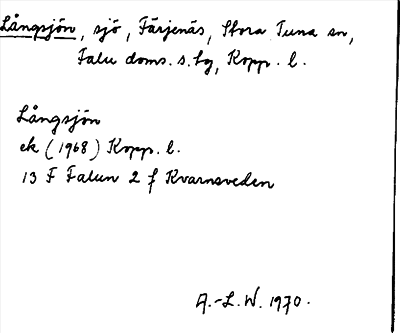 Långsjön, sjö, Färjenäs, Stora Tuna sn,
Falu doms. s. lg, Kopp. l.
Långsjön
ek (1968) Kopp. l.
13 F Falun 2 f Kvarnsveden
A.-L. W. 1970.